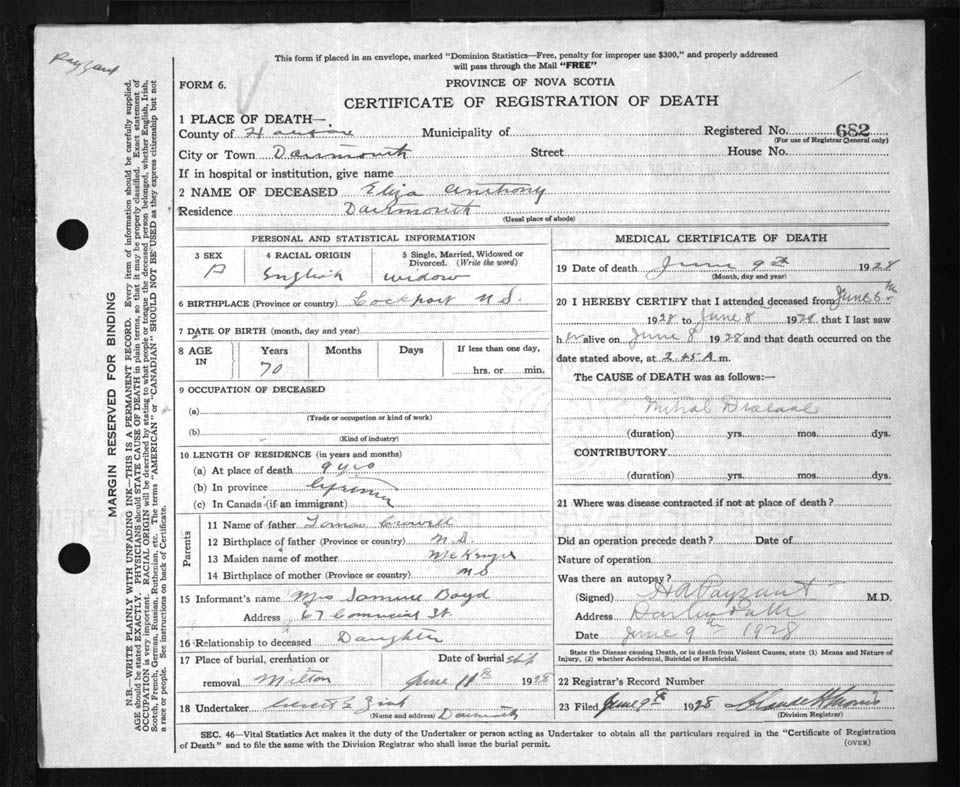 Payzant
This form if placed in an envelope, marked "Dominion Statistics—Free, penalty for improper use $300," and properly addressed
will pass through the Mail "FREE"
FORM 6.
PROVINCE OF NOVA SCOTIA
CERTIFICATE OF REGISTRATION OF DEATH
1 PLACE OF DEATH—
County of Halifax Municipality of Registered No. 682
(For use of Registrar General only)
City or Town Dartmouth Street House No.
If in hospital or institution, give name
2 NAME OF DECEASED Eliza Anthony
Residence Dartmouth
(Usual place of abode)
PERSONAL AND STATISTICAL INFORMATION
3 SEX 4 RACIAL ORIGIN 5 Single, Married, Widowed or
Divorced. (Write the word)
English widow
6 BIRTHPLACE (Province or country) N.S.
7 DATE OF BIRTH (month, day and year)
8 AGE IN Years Months Days If less than one day,
70 hrs. or min.
9 OCCUPATION OF DECEASED
(a)
(Trade or occupation or kind of work)
(b)
(Kind of industry)
10 LENGTH OF RESIDENCE (in years and months)
(a) At place of death 9 yrs
(b) In province Lifetime
(c) In Canada (if an immigrant)
Parents
11 Name of father Crowell
12 Birthplace of father (Province or country) N.S.
13 Maiden name of mother
14 Birthplace of mother (Province or country) NS
15 Informant's name Mrs Boyd
Address 67 St.
16 Relationship to deceased Daughter
17 Place of burial, cremation or Date of burial ship
removal Milton June 11th 1928
18 Undertaker
(Name and address) Dartmouth
MEDICAL CERTIFICATE OF DEATH
19 Date of death June 9th 1928
(Month, day and year)
20 I HEREBY CERTIFY that I attended deceased from June 6th
1928 to June 8 1928 that I last saw
h er alive on June 8 1928 and that death occurred on the
date stated above, at 2.45 A. m.
The CAUSE of DEATH was as follows:—
Mitral Disease
(duration) yrs. mos. dys.
CONTRIBUTORY
(duration) yrs. mos. dys.
21 Where was disease contracted if not at place of death?
Did an operation precede death? Date of
Nature of operation
Was there an autopsy?
(Signed) H A Payzant M.D.
Address
Date June 9th 1928
State the Disease causing Death, or in death from Violent Causes, state (1) Means and Nature of
Injury, (2) whether Accidental, Suicidal or Homicidal.
22 Registrar's Record Number
23 Filed June 9th 1928
(Division Registrar)
SEC. 46—Vital Statistics Act makes it the duty of the Undertaker or person acting as Undertaker to obtain all the particulars required in the "Certificate of Registration
of Death" and to file the same with the Division Registrar who shall issue the burial permit.
(OVER)
MARGIN RESERVED FOR BINDING
N.B.—WRITE PLAINLY WITH UNFADING INK—THIS IS A PERMANENT RECORD. Every item of information should be carefully supplied.
AGE should be stated EXACTLY. PHYSICIANS should STATE CAUSE OF DEATH in plain terms, so that it may be properly classified. Exact statement of
OCCUPATION is very important. RACIAL ORIGIN will be described by stating to what people or tongue the deceased person belonged, whether English, Irish,
Scotch, French, German, Russian, Ruthenian, etc. The terms "AMERICAN" or "CANADIAN" SHOULD NOT BE USED as they express citizenship but not
a race or people. See instructions on back of Certificate.